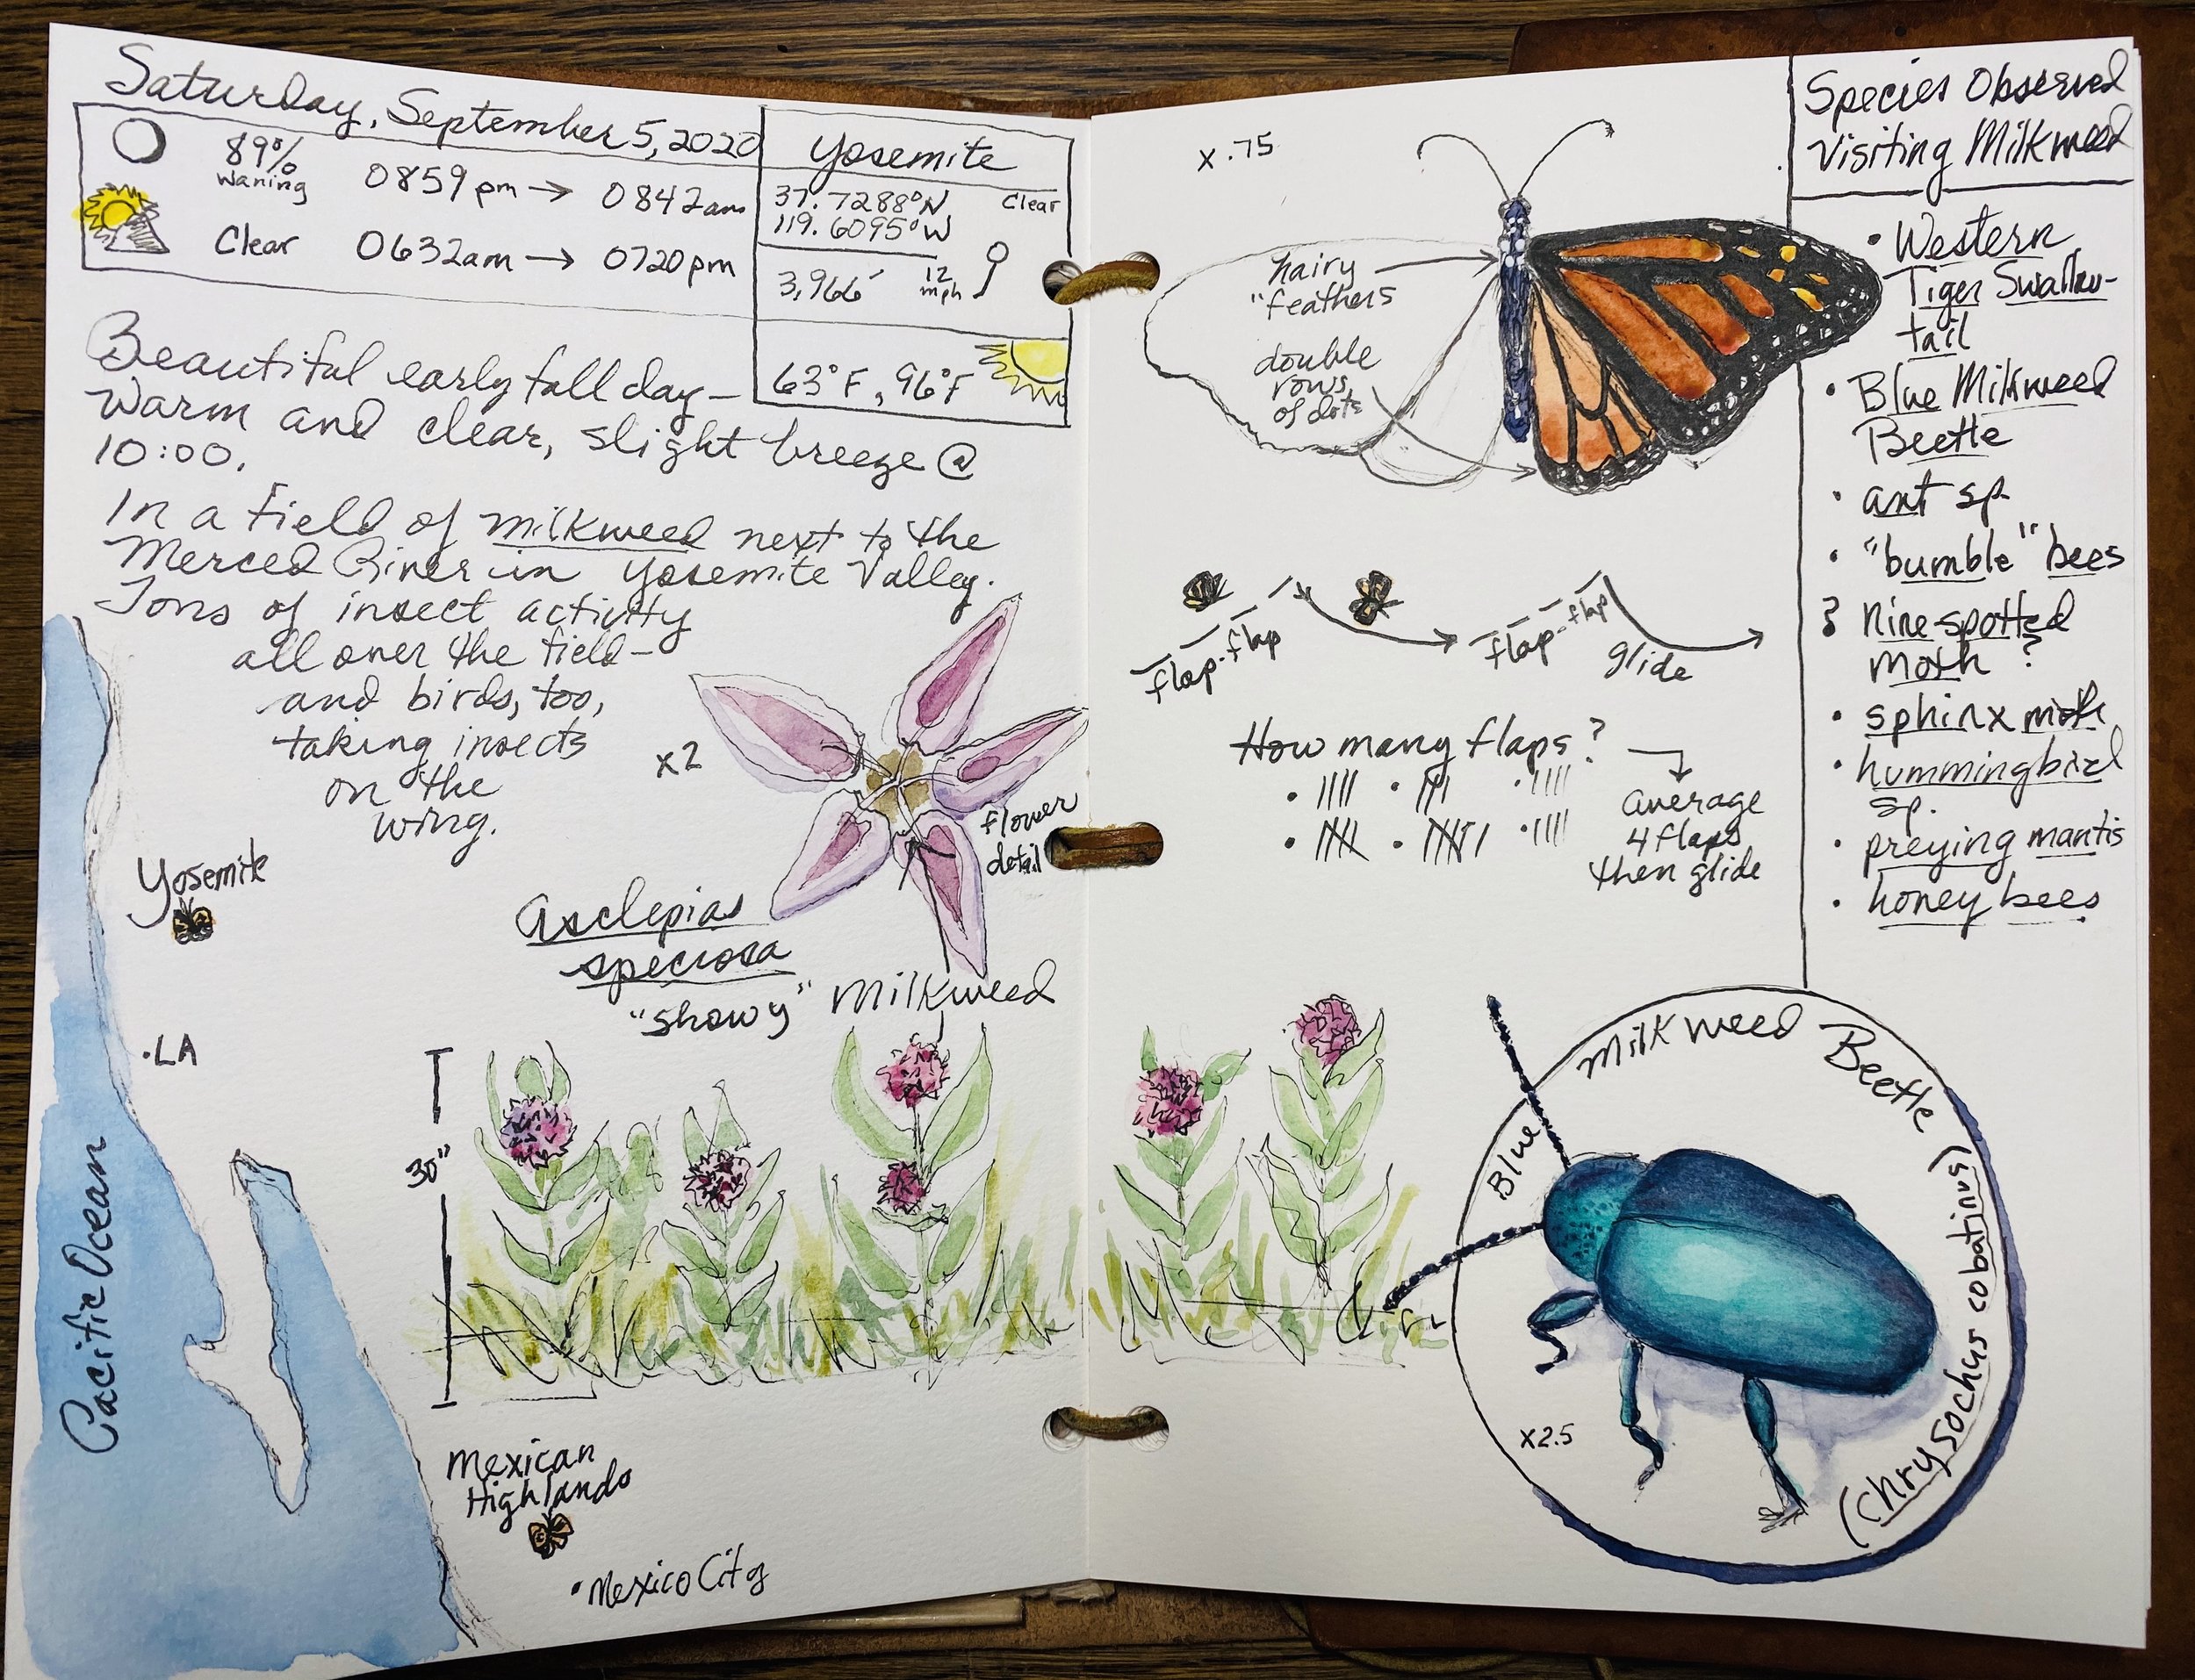 Saturday, September 5, 2020
89%
Waning
0859pm → 0842am
Clear
0632am → 0720pm
Yosemite
37.7288°N
119.6095°W
Clear
3,966'
12
mph
63°F, 96°F
Beautiful early fall day—
Warm and clear, slight breeze @
10:00.
In a field of milkweed next to the
Merced River in Yosemite Valley.
Tons of insect activity
all over the field—
and birds, too,
taking insects
on the
wing.
x2
flower
detail
Asclepias
speciosa
"showy" Milkweed
Yosemite
.LA
Pacific Ocean
30"
Mexican
Highlands
•Mexico City
x.75
hairy
"feathers
double
rows
of dots
flap-flap
flap-flap
glide
How many flaps?
• |||| • |||| • ||||
• |||| • |||| | • ||||
average
4 flaps
then glide
Species Observed
Visiting Milkweed
• Western
Tiger Swallow-
tail
• Blue Milkweed
Beetle
• ant sp.
• "bumble" bees
? Nine-spotted
moth ?
• sphinx moth
• hummingbird
sp.
• preying mantis
• honey bees
Blue Milkweed Beetle
(Chrysochus cobatinus)
x2.5